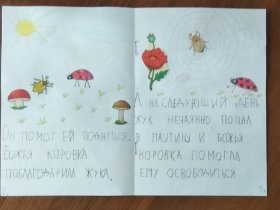 Он помог ей подняться.
Божья коровка
поблагодарила жука.
2
А на следующий день
жук нечаянно попал
в паутину и божья
коровка помогла
ему освободиться
3